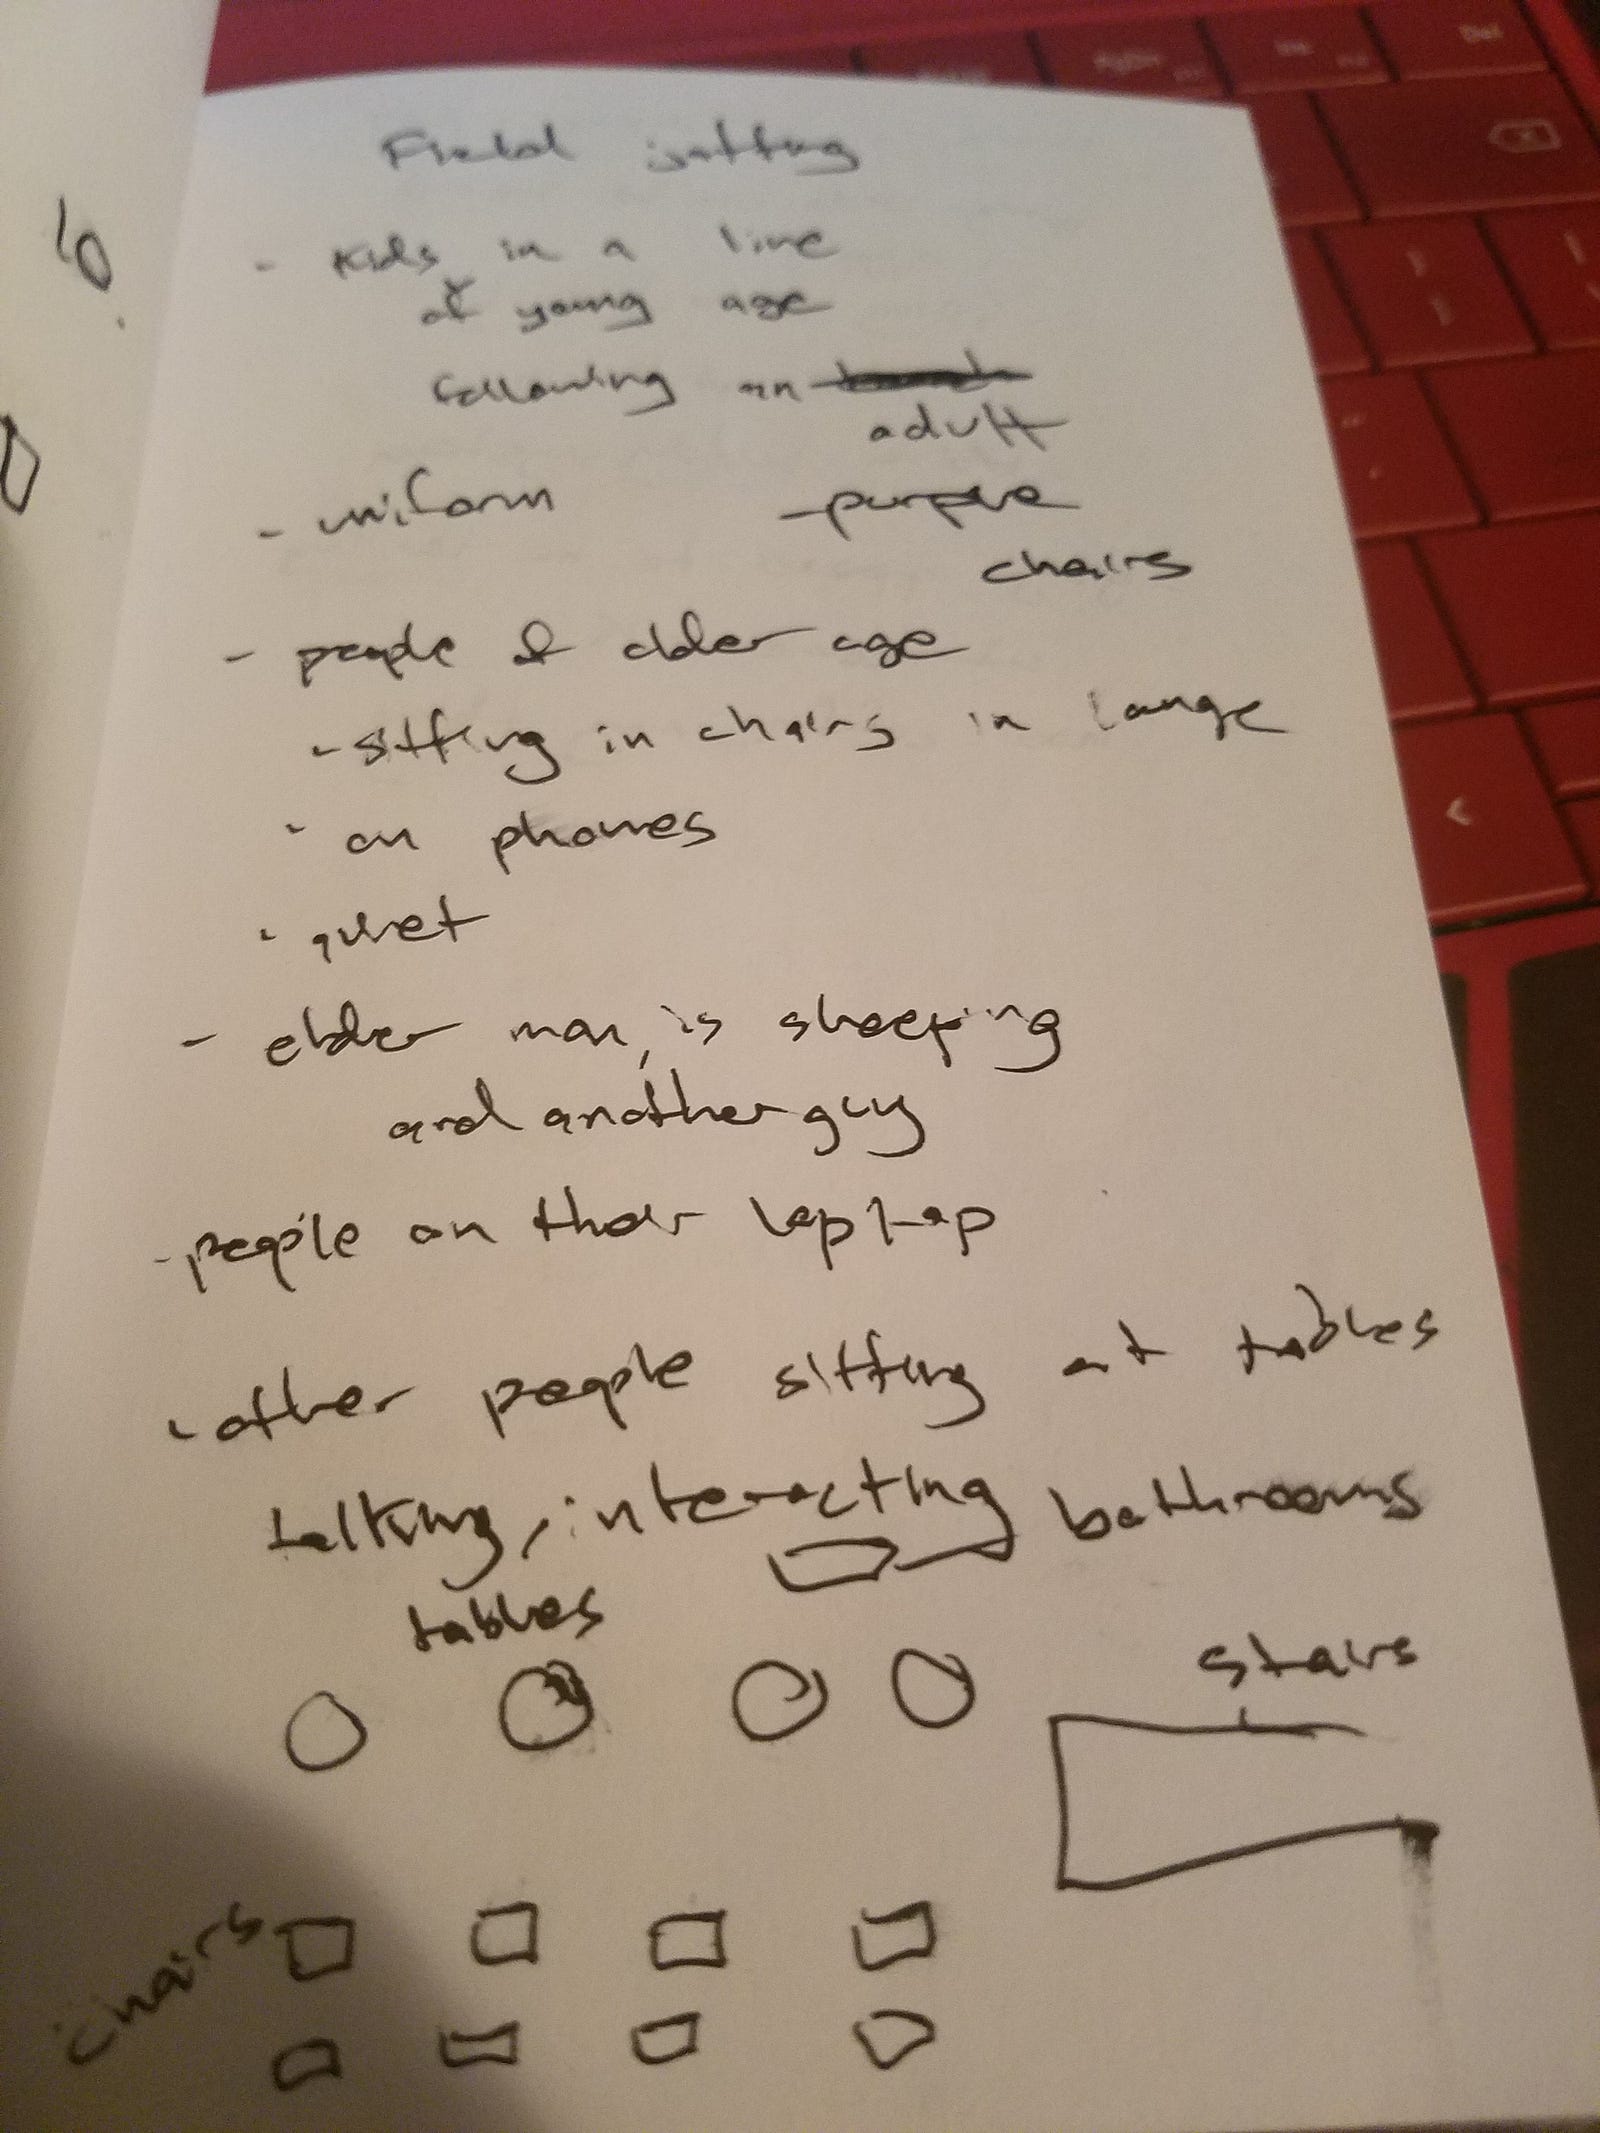 Field jotting
- Kids in a line
of young age
following an
adult
- uniform
- purple
chairs
- people of older age
- sitting in chairs in lounge
- on phones
- quiet
- elder man, is sleeping
and another guy
- people on their laptop
- other people sitting at tables
talking, interacting
bathrooms
tables
stairs
chairs